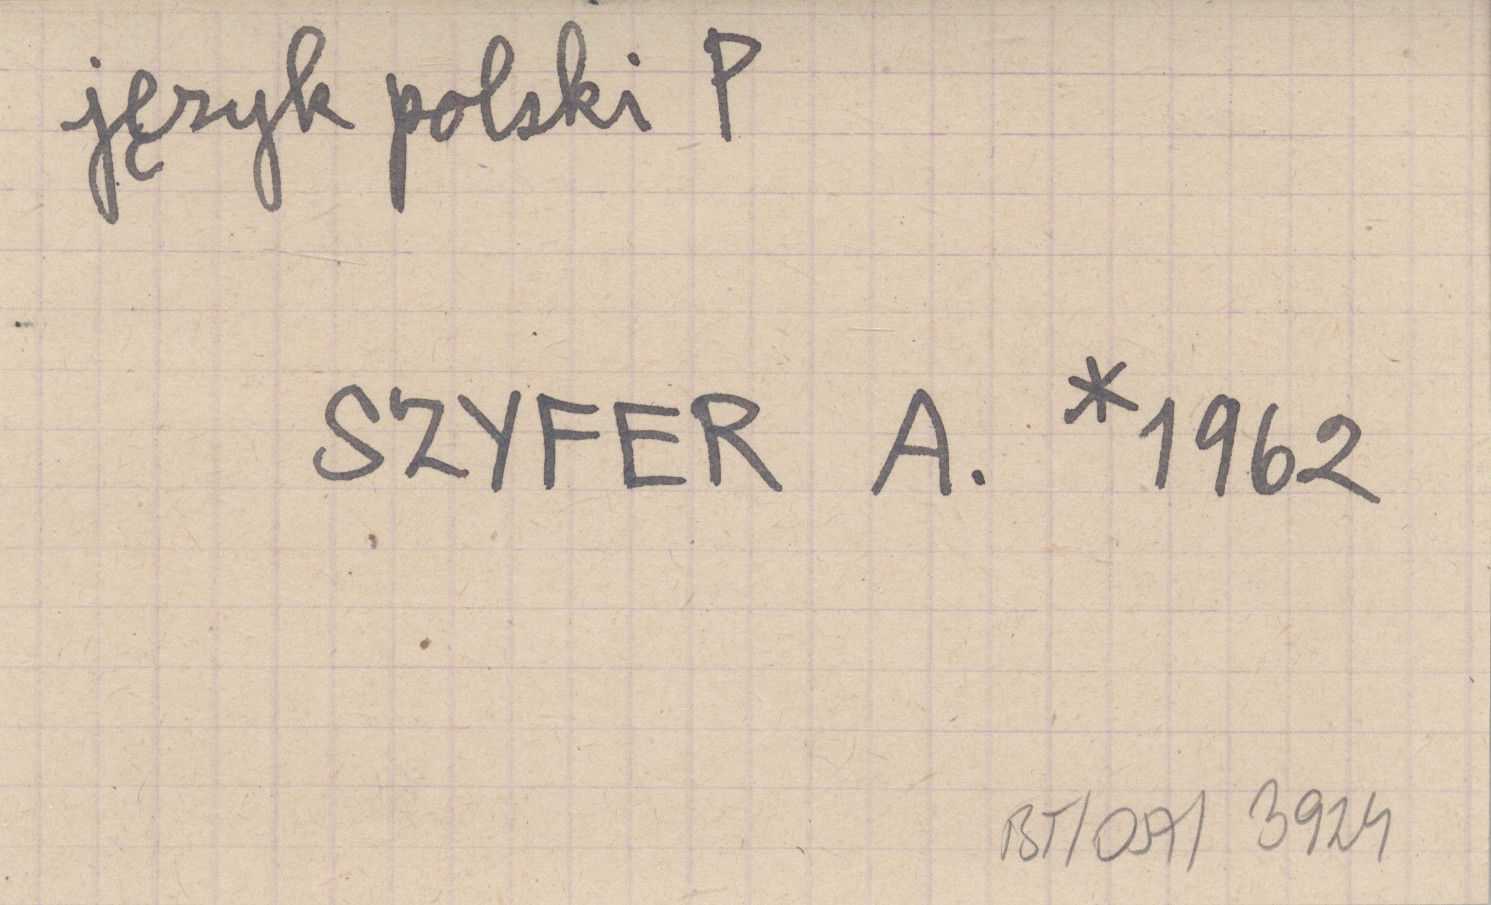 język polski P
SZYFER A. *1962
BT/OSA/ 3924